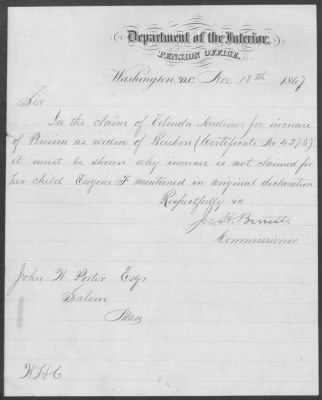 Department of the Interior,
PENSION OFFICE,
Washington D.C. Nov. 13th 1867
Sir
In the claim of Velinda Andrews for increase
of Pension as widow of Reuben (Certificate No 4375)
it must be shown why increase is not claimed for
her child Eugene F mentioned in original declaration
Respectfully &c
Jos. H. Barrett.
Commissioner
John W Porter Esqr
Salem
Mass